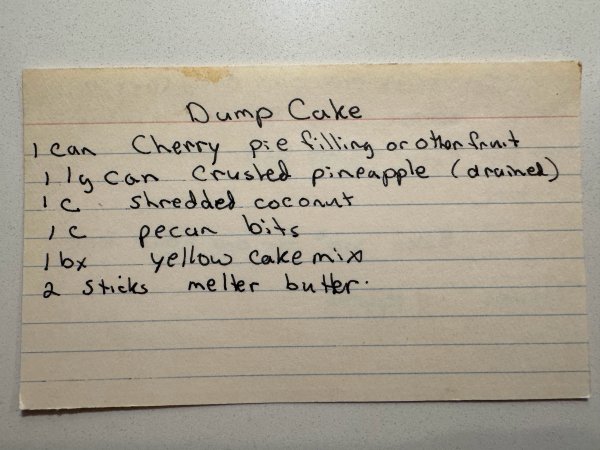 Dump Cake
1 can Cherry pie filling or other fruit
1 lg can crushed pineapple (drained)
1 c. shredded coconut
1 c pecan bits
1 bx yellow cake mix
2 sticks melter butter.